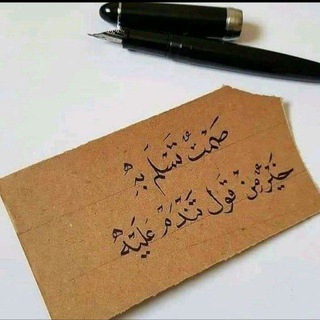 صمتٌ تَسْلَمَ بِهِ
خَيْرٌ مِّنْ قَوْلٍ تَنْدَمْ عَلَيْهِ